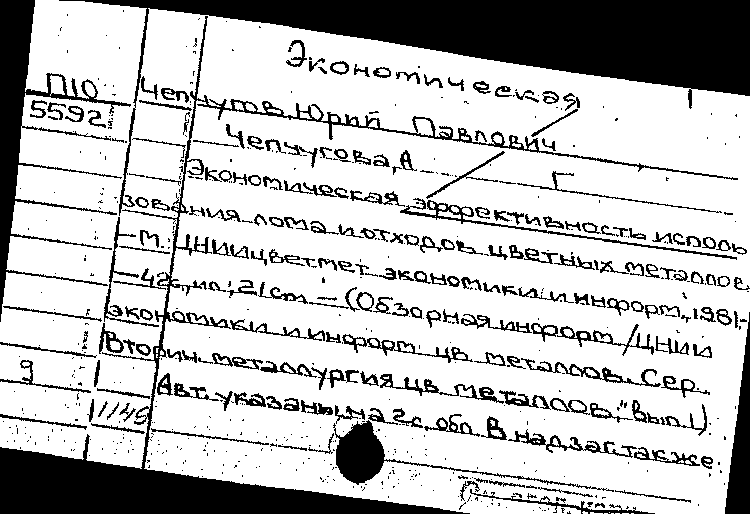 Экономическая
П10
5592
Чепчугов, Юрий Павлович
Чепчугова, А Г
Экономическая эффективность исполь
зования лома и отходов цветных металлов
—М.: ЦНИИцветмет экономики и информ., 1981,-
—42с, ил.; 21 cm — (Обзорная информ / ЦНИИ
экономики и информ цв металлов. Сер.
Вторич. металлургия цв металлов; Вып. 1)
9
Авт. указаны на 2с. обл. В надзаг. также:
1149